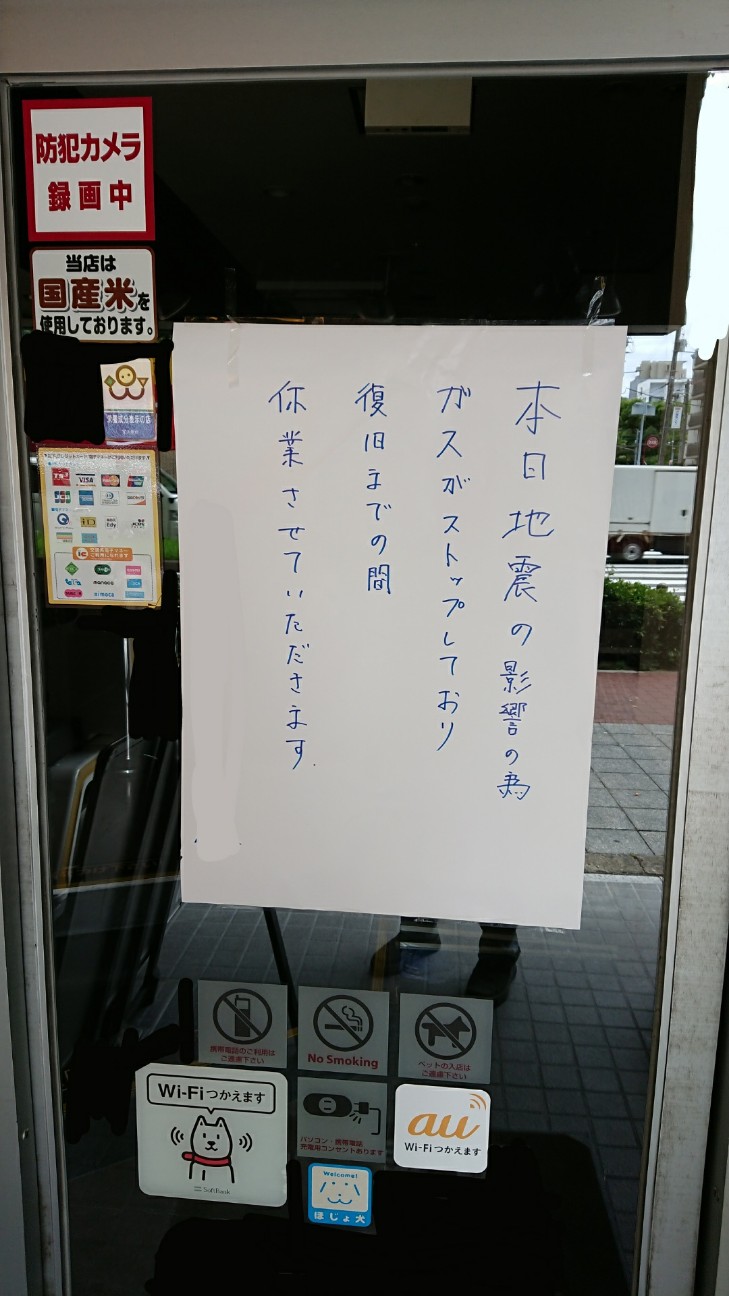 防犯カメラ
録画中
当店は
国産米を
使用しております。
本日地震の影響の為
ガスがストップしており
復旧までの間
休業させていただきます.
VISA
JCB
Edy
manaca
携帯電話のご利用は
ご遠慮下さい
No Smoking
ペットの入店は
ご遠慮下さい
Wi-Fiつかえます
SoftBank
パソコン・携帯電話
充電用コンセントあります
au
Wi-Fiつかえます
Welcome!
ほじょ犬